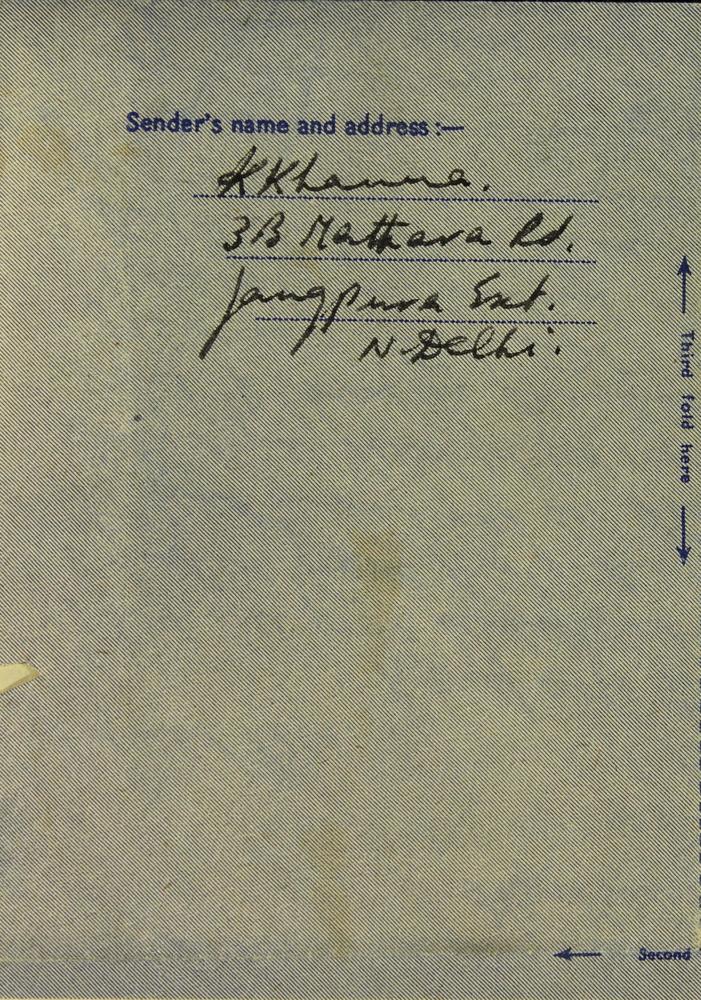 Sender's name and address :—
K Khanna.
3B Mathura Rd.
Jangpura Ext.
N. Delhi.
Third fold here
Second